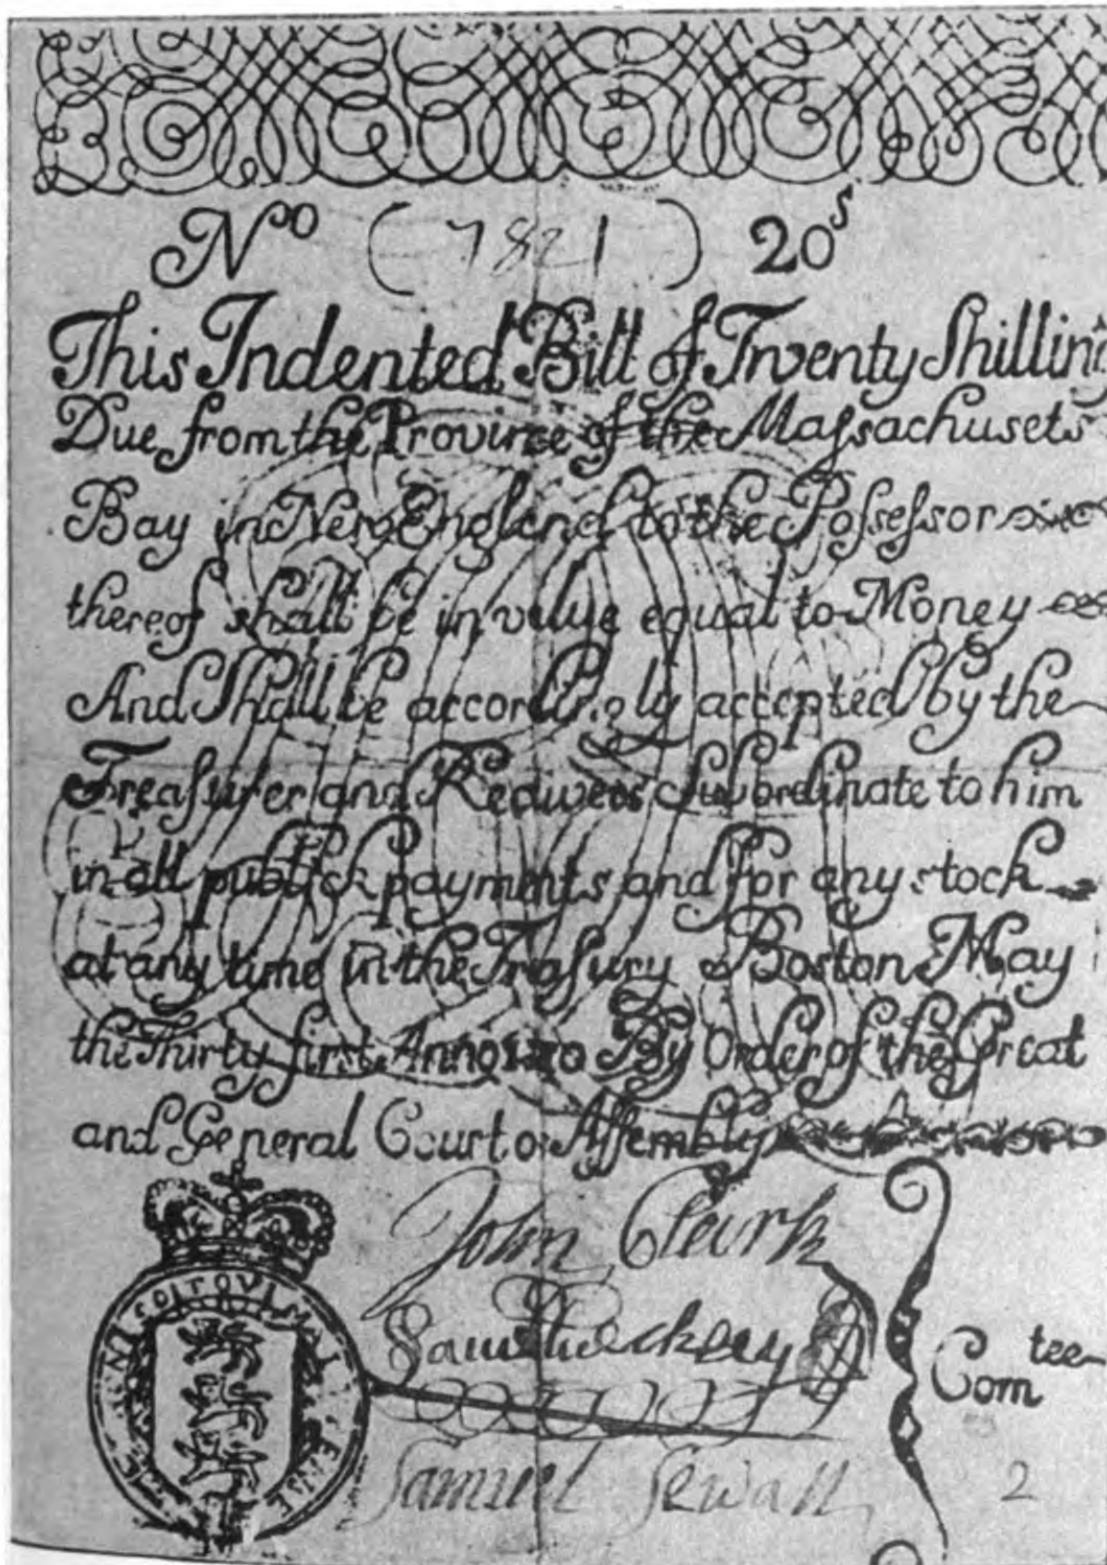 No (7821) 20s
This Indented Bill of Twenty Shilling
Due from the Province of the Maſsachusets
Bay in New England to the Poſseſsor
thereof shall be in value equal to Money
And Shall be accordingly accepted by the
Treaſurer and Receivers Subordinate to him
in all publick payments and for any stock
at any time in the Treaſury Boston May
the Thirty first Anno 1710 By Order of the Great
and General Court or Aſſembly
John Clark
Com tee
Samuel Sewall
2
HONI SOIT QUI MAL Y PENSE